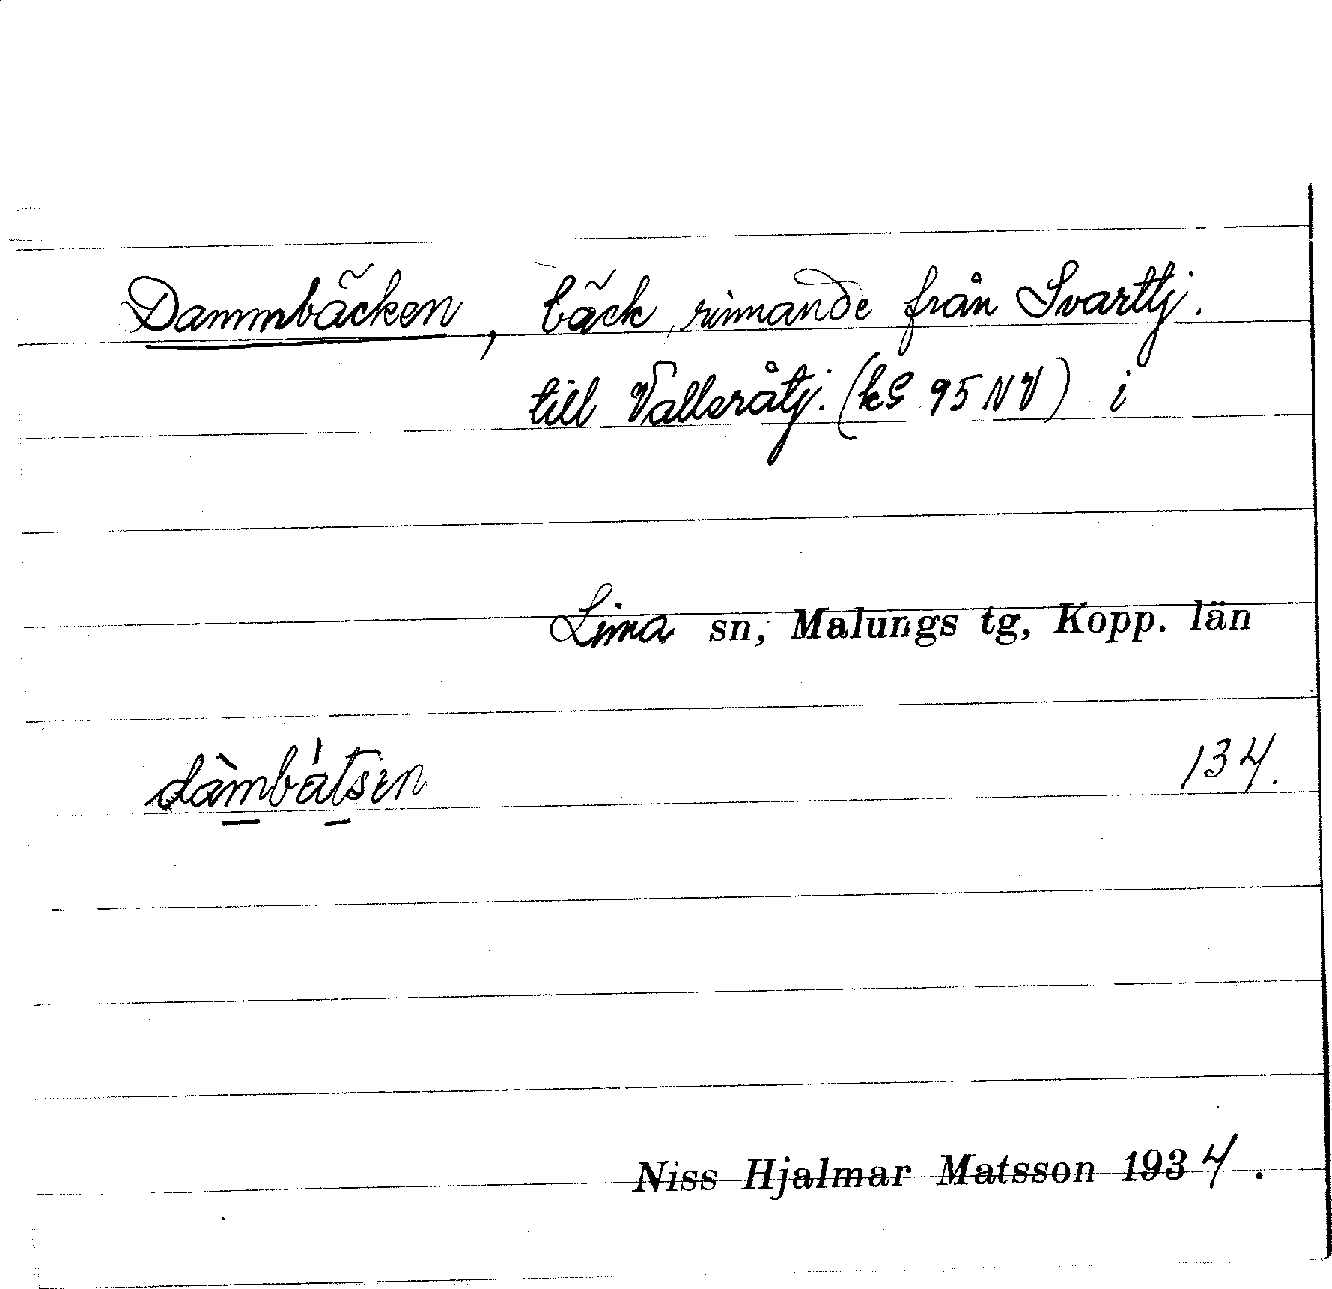 Dammbäcken, bäck, rinnande från Svarttj.
till Valleråtj. (kS 95 NV) i
Lima sn, Malungs tg, Kopp. län
dàmbátsen 134.
Niss Hjalmar Matsson 1934.